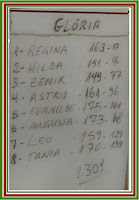 GLÓRIA
1- REGINA - 163-17
2- HILDA - 151-
3- ZENIR - 149-77
4- ASTRID - 164-96
5- EVANILDE - 125-
6- AUGUSTA - 123-
7- LEO - 159-129
8- TANIA - 170-139
1301